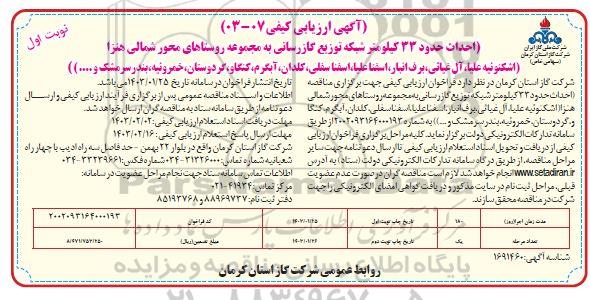 نوبت اول
(آگهی ارزیابی کیفی ۰۷-۰۳)
شرکت ملی گاز ایران
شرکت گاز استان کرمان
(سهامی خاص)
(احداث حدود ۳۳ کیلومتر شبکه توزیع گازرسانی به مجموعه روستاهای محور شمالی هنزا
(اشکنوئیه علیا، آل غیاثی، برف انبار، اسفنا علیا، اسفنا سفلی، کلدان، آبگرم، کنگاو، گردوستان، خمروئیه، بندر سر مشک و ....))
شرکت گاز استان کرمان در نظر دارد فراخوان ارزیابی کیفی جهت برگزاری مناقصه
(احداث حدود ۳۳ کیلومتر شبکه توزیع گازرسانی به مجموعه روستاهای محور شمالی
هنزا (اشکنوئیه علیا، آل غیاثی، برف انبار، اسفنا علیا، اسفنا سفلی، کلدان، آبگرم، کنگا
و، گردوستان، خمروئیه، بندر سر مشک و ....)) به شماره ۲۰۰۲۰۹۳۱۶۴۰۰۰۱۹۳ از طریق
سامانه تدارکات الکترونیکی دولت برگزار نماید. کلیه مراحل برگزاری فراخوان ارزیابی
کیفی از دریافت و تحویل اسناد استعلام ارزیابی کیفی تا ارسال دعوتنامه جهت سایر
مراحل مناقصه، از طریق درگاه سامانه تدارکات الکترونیکی دولت (ستاد) به آدرس
www.setadiran.ir انجام خواهد شد لازم است مناقصه گران در صورت عدم عضویت
قبلی، مراحل ثبت نام در سایت مذکور و دریافت گواهی امضای الکترونیکی را جهت
شرکت در مناقصه محقق سازند.
تاریخ انتشار فراخوان در سامانه تاریخ ۱۴۰۳/۰۱/۲۵ می باشد.
اطلاعات و اسناد مناقصه عمومی پس از برگزاری فرآیند ارزیابی کیفی و ارسال
دعوتنامه از طریق سامانه ستاد به مناقصه گران ارسال خواهد شد.
مهلت دریافت اسناد استعلام ارزیابی کیفی: ۱۴۰۳/۰۲/۰۲
مهلت ارسال پاسخ استعلام ارزیابی کیفی: ۱۴۰۳/۰۲/۱۶
شرکت گاز استان کرمان واقع در بلوار ۲۲ بهمن - حد فاصل سه راه ادیب با چهار راه
شعبانیه شماره تماس: ۳۱۳۲۶۰۰۰-۰۳۴ شماره فکس: ۳۳۲۳۹۶۶۱-۰۳۴
اطلاعات تماس سامانه ستاد جهت نجام مراحل عضویت در سامانه:
مرکز تماس: ۴۱۹۳۴-۰۲۱
دفتر ثبت نام: ۸۸۹۶۹۷۳۷ و ۸۵۱۹۳۷۶۸
مدت زمان اجرا(روز) ۱۸۰ تاریخ چاپ نوبت اول ۱۴۰۳/۰۱/۲۵ کد فراخوان ۲۰۰۲۰۹۳۱۶۴۰۰۰۱۹۳
تعداد مرحله یک تاریخ چاپ نوبت دوم ۱۴۰۳/۰۱/۲۶ مبلغ تضمین(ریال)
شناسه آگهی: ۱۶۹۱۴۶۰
روابط عمومی شرکت گاز استان کرمان